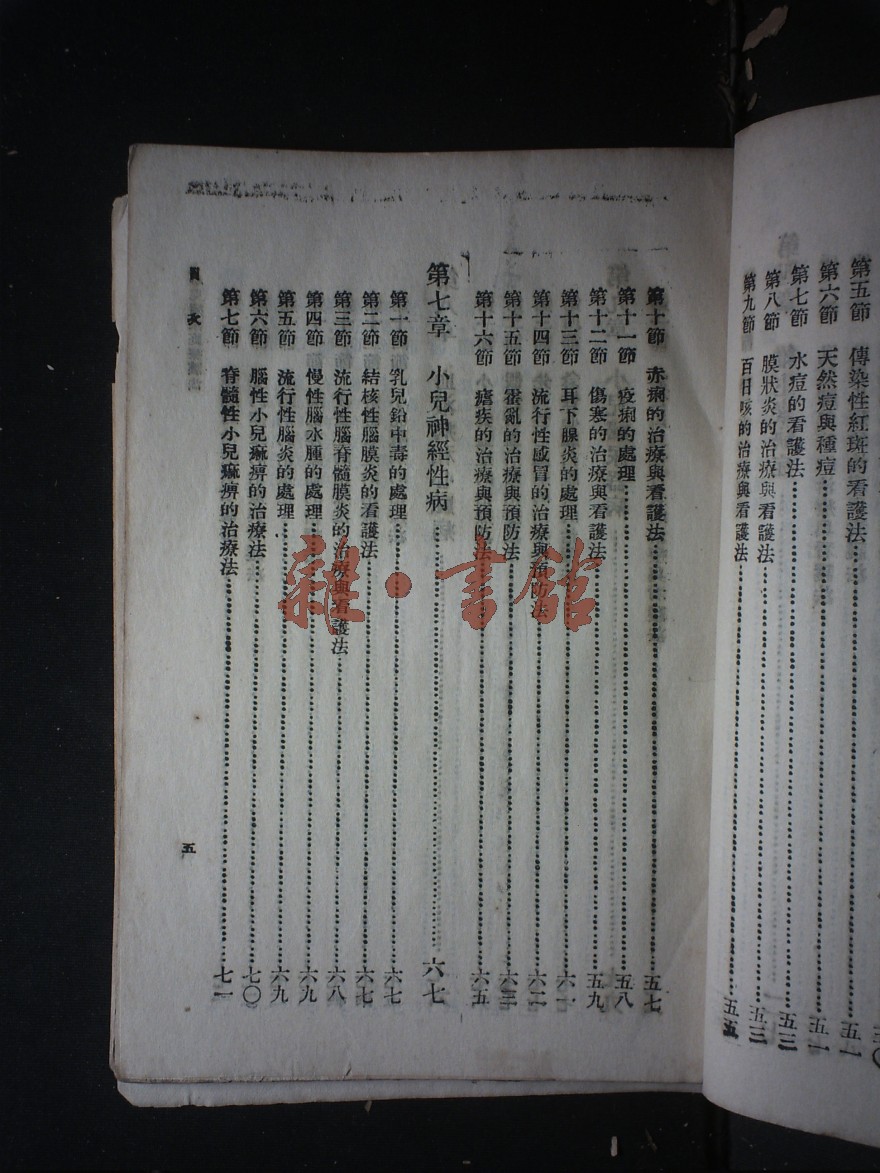 第五節 傳染性紅斑的看護法 五一
第六節 天然痘與種痘 五一
第七節 水痘的看護法 五三
第八節 膜狀炎的治療與看護法 五三
第九節 百日咳的治療與看護法 五五
第十節 赤痢的治療與看護法 五七
第十一節 疫痢的處理 五八
第十二節 傷寒的治療與看護法 五九
第十三節 耳下腺炎的處理 六一
第十四節 流行性感冒的治療與預防法 六二
第十五節 霍亂的治療與預防法 六三
第十六節 瘧疾的治療與預防法 六五
第七章 小兒神經性病 六七
第一節 乳兒鉛中毒的處理 六七
第二節 結核性腦膜炎的看護法 六七
第三節 流行性腦脊髓膜炎的治療與看護法 六八
第四節 慢性腦水腫的處理 六九
第五節 流行性腦炎的處理 六九
第六節 腦性小兒痲痹的治療法 七〇
第七節 脊髓性小兒痲痹的治療法 七一
目次
五
雜·書館